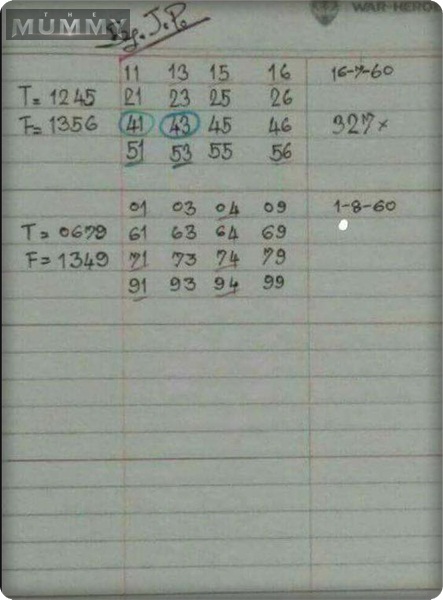 THE
MUMMY
WAR-HERO
By. J.P.
11 13 15 16 16-7-60
T= 1245 21 23 25 26
F= 1356 41 43 45 46 327×
51 53 55 56
01 03 04 09 1-8-60
T= 0679 61 63 64 69
F= 1349 71 73 74 79
91 93 94 99